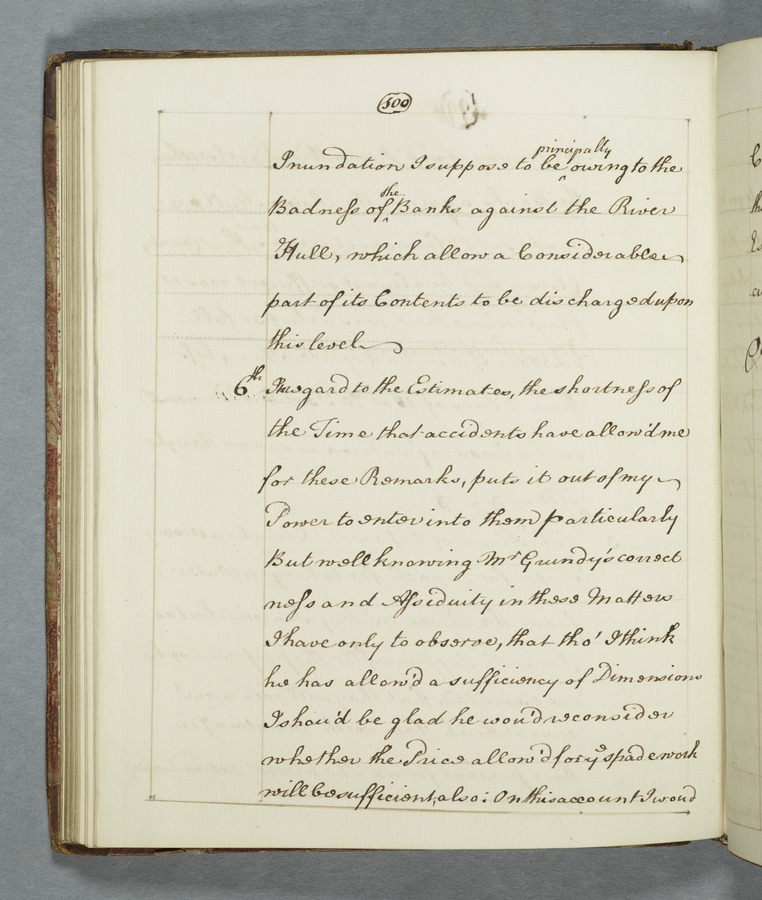 500
Inundation I suppose to be principally owing to the
Badness of the Banks against the River
Hull, which allow a Considerable
part of its Contents to be discharged upon
this level
6th In regard to the Estimates, the shortness of
the Time that accidents have allow'd me
for these Remarks, puts it out of my
Power to enter into them particularly
But well knowing Mr Grundy's correct
ness and Assiduity in these Matters
I have only to observe, that tho' I think
he has allow'd a sufficiency of Dimensions
I shou'd be glad he wou'd reconsider
whether the Price allow'd for ye spade work
will be sufficient, also: On this account I woud